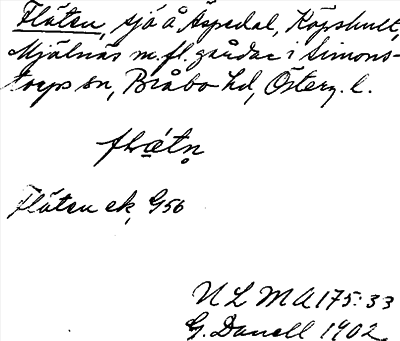 Flåten, sjö å Äspedal, Köpshult,
Mjälnäs m.fl. gårdar i Simons-
torps sn, Bråbo hd, Österg. l.
Flåten ek, G56
ULMA 175:33
G. Danell 1902.